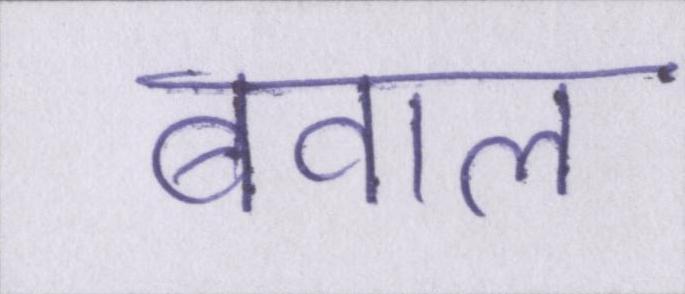 बवाल